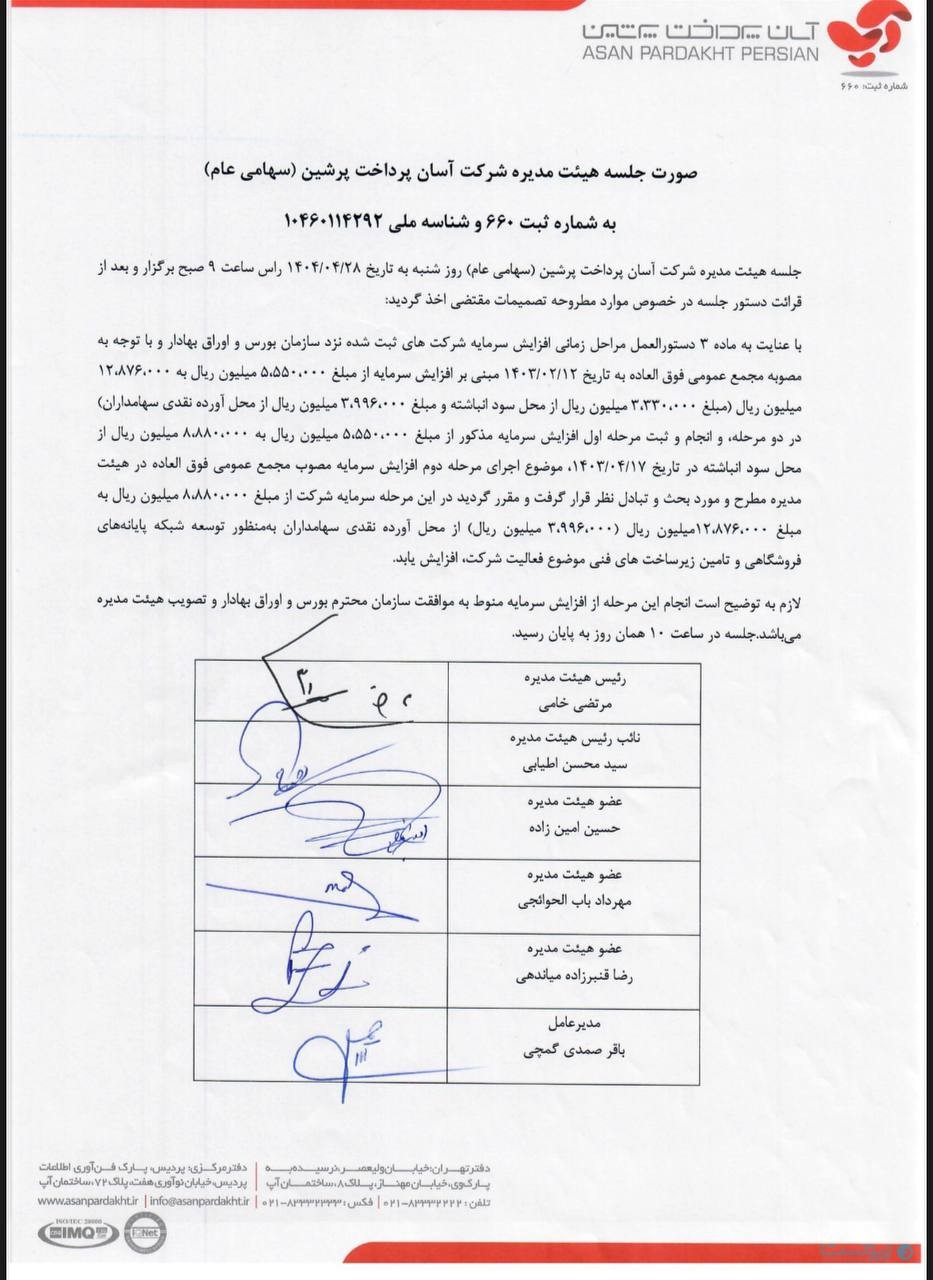 آسان پرداخت پرشین
ASAN PARDAKHT PERSIAN
شماره ثبت: ۶۶۰
صورت جلسه هیئت مدیره شرکت آسان پرداخت پرشین (سهامی عام)
به شماره ثبت ۶۶۰ و شناسه ملی ۱۰۴۶۰۱۱۴۲۹۲
جلسه هیئت مدیره شرکت آسان پرداخت پرشین (سهامی عام) روز شنبه به تاریخ ۱۴۰۴/۰۴/۲۸ راس ساعت ۹ صبح برگزار و بعد از
قرائت دستور جلسه در خصوص موارد مطروحه تصمیمات مقتضی اخذ گردید:
با عنایت به ماده ۳ دستورالعمل مراحل زمانی افزایش سرمایه شرکت های ثبت شده نزد سازمان بورس و اوراق بهادار و با توجه به
مصوبه مجمع عمومی فوق العاده به تاریخ ۱۴۰۳/۰۲/۱۲ مبنی بر افزایش سرمایه از مبلغ ۵،۵۵۰،۰۰۰ میلیون ریال به ۱۲،۸۷۶،۰۰۰
میلیون ریال (مبلغ ۳،۳۳۰،۰۰۰ میلیون ریال از محل سود انباشته و مبلغ ۳،۹۹۶،۰۰۰ میلیون ریال از محل آورده نقدی سهامداران)
در دو مرحله، و انجام و ثبت مرحله اول افزایش سرمایه مذکور از مبلغ ۵،۵۵۰،۰۰۰ میلیون ریال به ۸،۸۸۰،۰۰۰ میلیون ریال از
محل سود انباشته در تاریخ ۱۴۰۳/۰۴/۱۷، موضوع اجرای مرحله دوم افزایش سرمایه مصوب مجمع عمومی فوق العاده در هیئت
مدیره مطرح و مورد بحث و تبادل نظر قرار گرفت و مقرر گردید در این مرحله سرمایه شرکت از مبلغ ۸،۸۸۰،۰۰۰ میلیون ریال به
مبلغ ۱۲،۸۷۶،۰۰۰میلیون ریال (۳،۹۹۶،۰۰۰ میلیون ریال) از محل آورده نقدی سهامداران به‌منظور توسعه شبکه پایانه‌های
فروشگاهی و تامین زیرساخت های فنی موضوع فعالیت شرکت، افزایش یابد.
لازم به توضیح است انجام این مرحله از افزایش سرمایه منوط به موافقت سازمان محترم بورس و اوراق بهادار و تصویب هیئت مدیره
می‌باشد.جلسه در ساعت ۱۰ همان روز به پایان رسید.
رئیس هیئت مدیره
مرتضی خامی
نائب رئیس هیئت مدیره
سید محسن اطیابی
عضو هیئت مدیره
حسین امین زاده
عضو هیئت مدیره
مهرداد باب الحوائجی
عضو هیئت مدیره
رضا قنبرزاده میاندهی
مدیرعامل
باقر صمدی گمچی
دفتر تهران: خیابان ولیعصر، نرسیده به
پارک‌وی، خیابان مهناز، پلاک ۸، ساختمان آپ
تلفن: ۸۲۳۳۲۲۲۲-۰۲۱ | فکس: ۸۲۳۳۲۳۲۳-۰۲۱
دفتر مرکزی: پردیس، پارک فن‌آوری اطلاعات
پردیس، خیابان نوآوری هفت، پلاک ۷۲، ساختمان آپ
www.asanpardakht.ir | info@asanpardakht.ir
ISO/IEC 20000
IMQ
IQNet